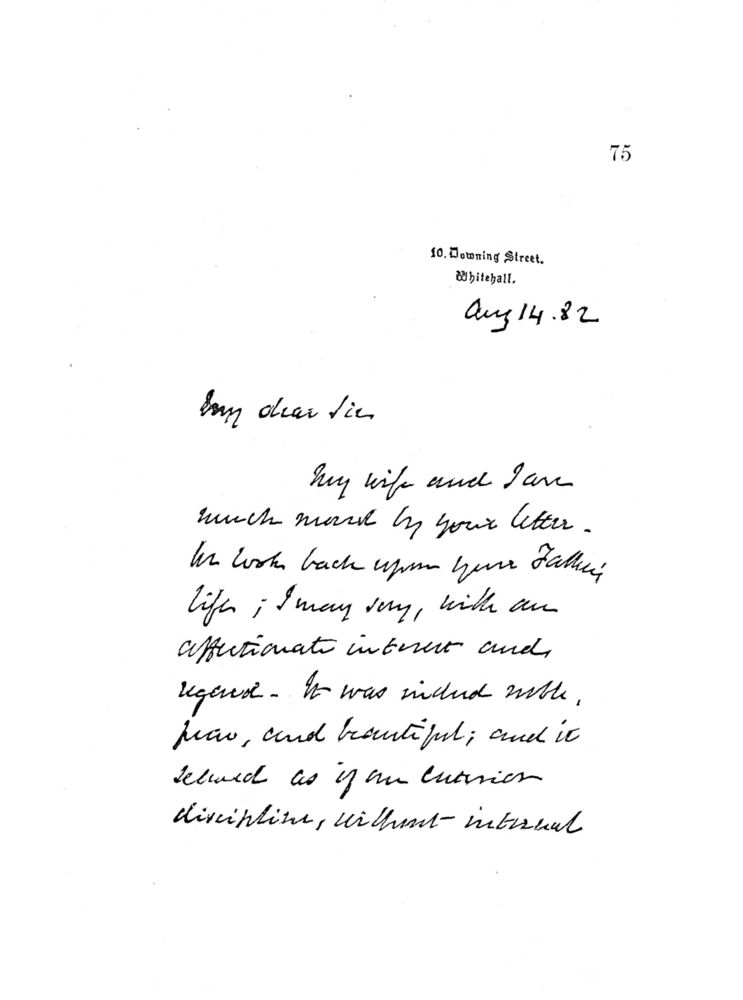 75
10, Downing Street,
Whitehall.
Aug 14. 82
My dear Sir
My wife and I are
much moved by your letter -
We look back upon your Father's
life; I may say, with an
affectionate interest and
regard - It was indeed noble,
pure, and beautiful; and it
seemed as if an exterior
discipline, without internal